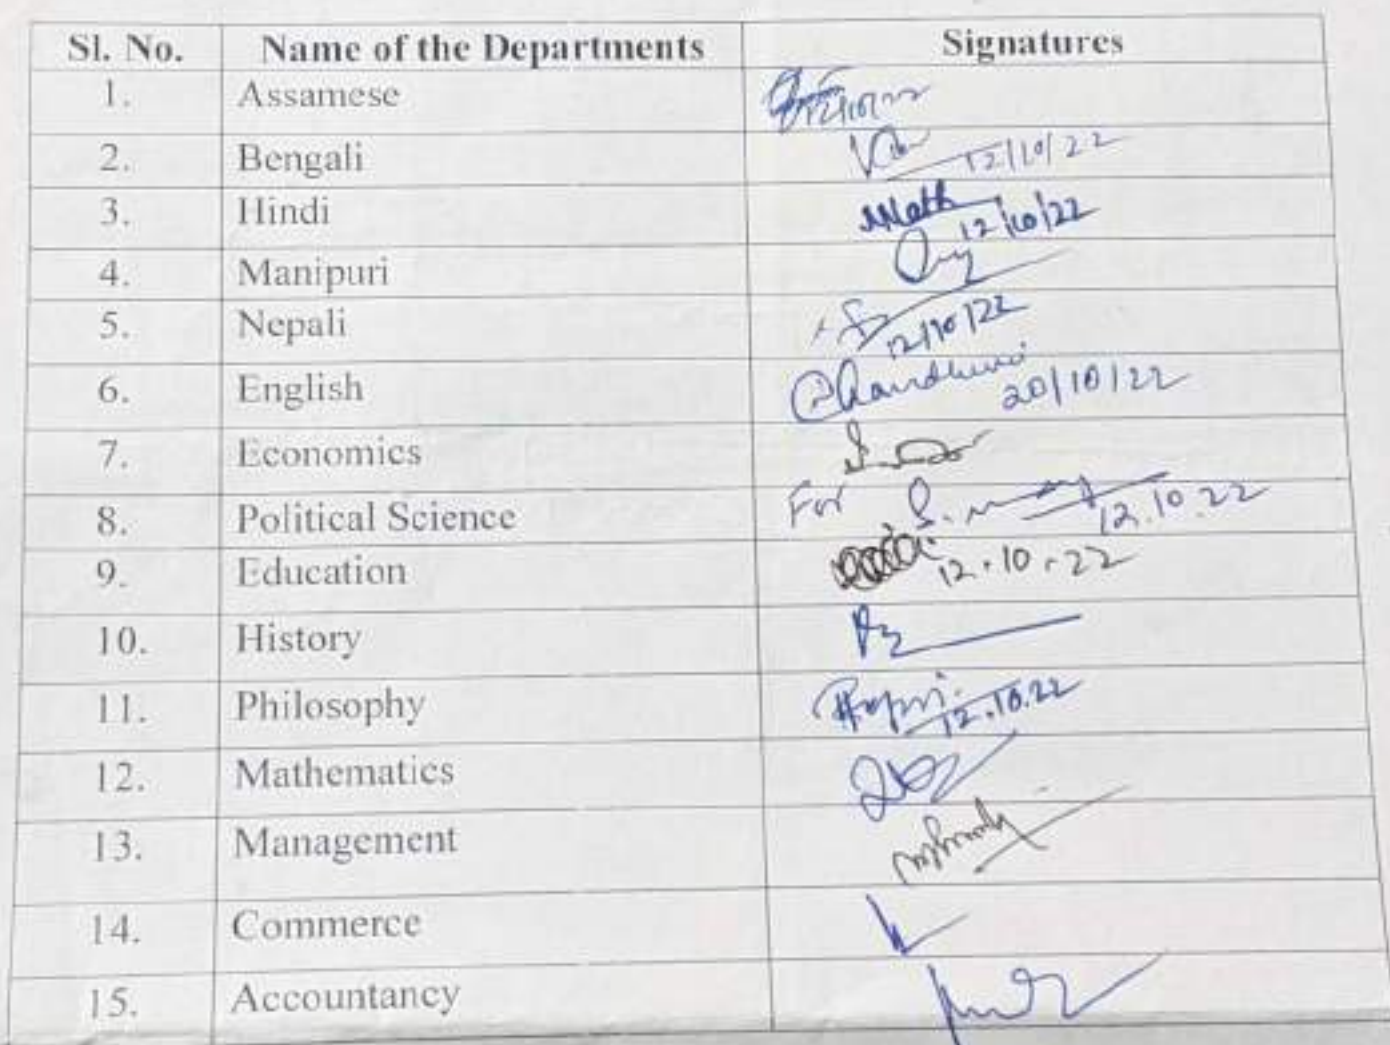 Sl. No. Name of the Departments Signatures
1. Assamese 12/10/22
2. Bengali 12/10/22
3. Hindi 12/10/22
4. Manipuri
5. Nepali 12/10/22
6. English 20/10/22
7. Economics
8. Political Science For 12.10.22
9. Education 12.10.22
10. History
11. Philosophy 12.10.22
12. Mathematics
13. Management
14. Commerce
15. Accountancy